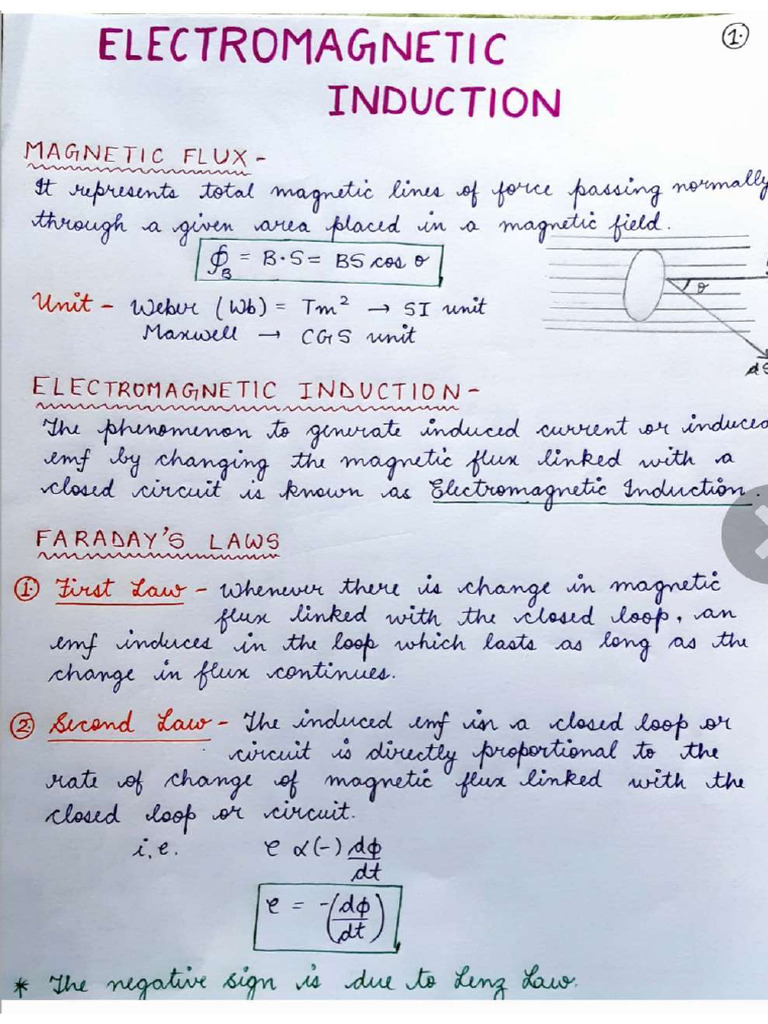 ELECTROMAGNETIC
INDUCTION
1.
MAGNETIC FLUX -
It represents total magnetic lines of force passing normally
through a given area placed in a magnetic field.
ϕB = B·S = BS cos θ
θ
Unit - Weber (Wb) = Tm² → SI unit
Maxwell → CGS unit
ELECTROMAGNETIC INDUCTION -
The phenomenon to generate induced current or induced
emf by changing the magnetic flux linked with a
closed circuit is known as Electromagnetic Induction.
FARADAY'S LAWS
1. First Law - Whenever there is change in magnetic
flux linked with the closed loop, an
emf induces in the loop which lasts as long as the
change in flux continues.
2. Second Law - The induced emf in a closed loop or
circuit is directly proportional to the
rate of change of magnetic flux linked with the
closed loop or circuit.
i.e. e α (-) dϕ/dt
e = -(dϕ/dt)
* The negative sign is due to Lenz Law.